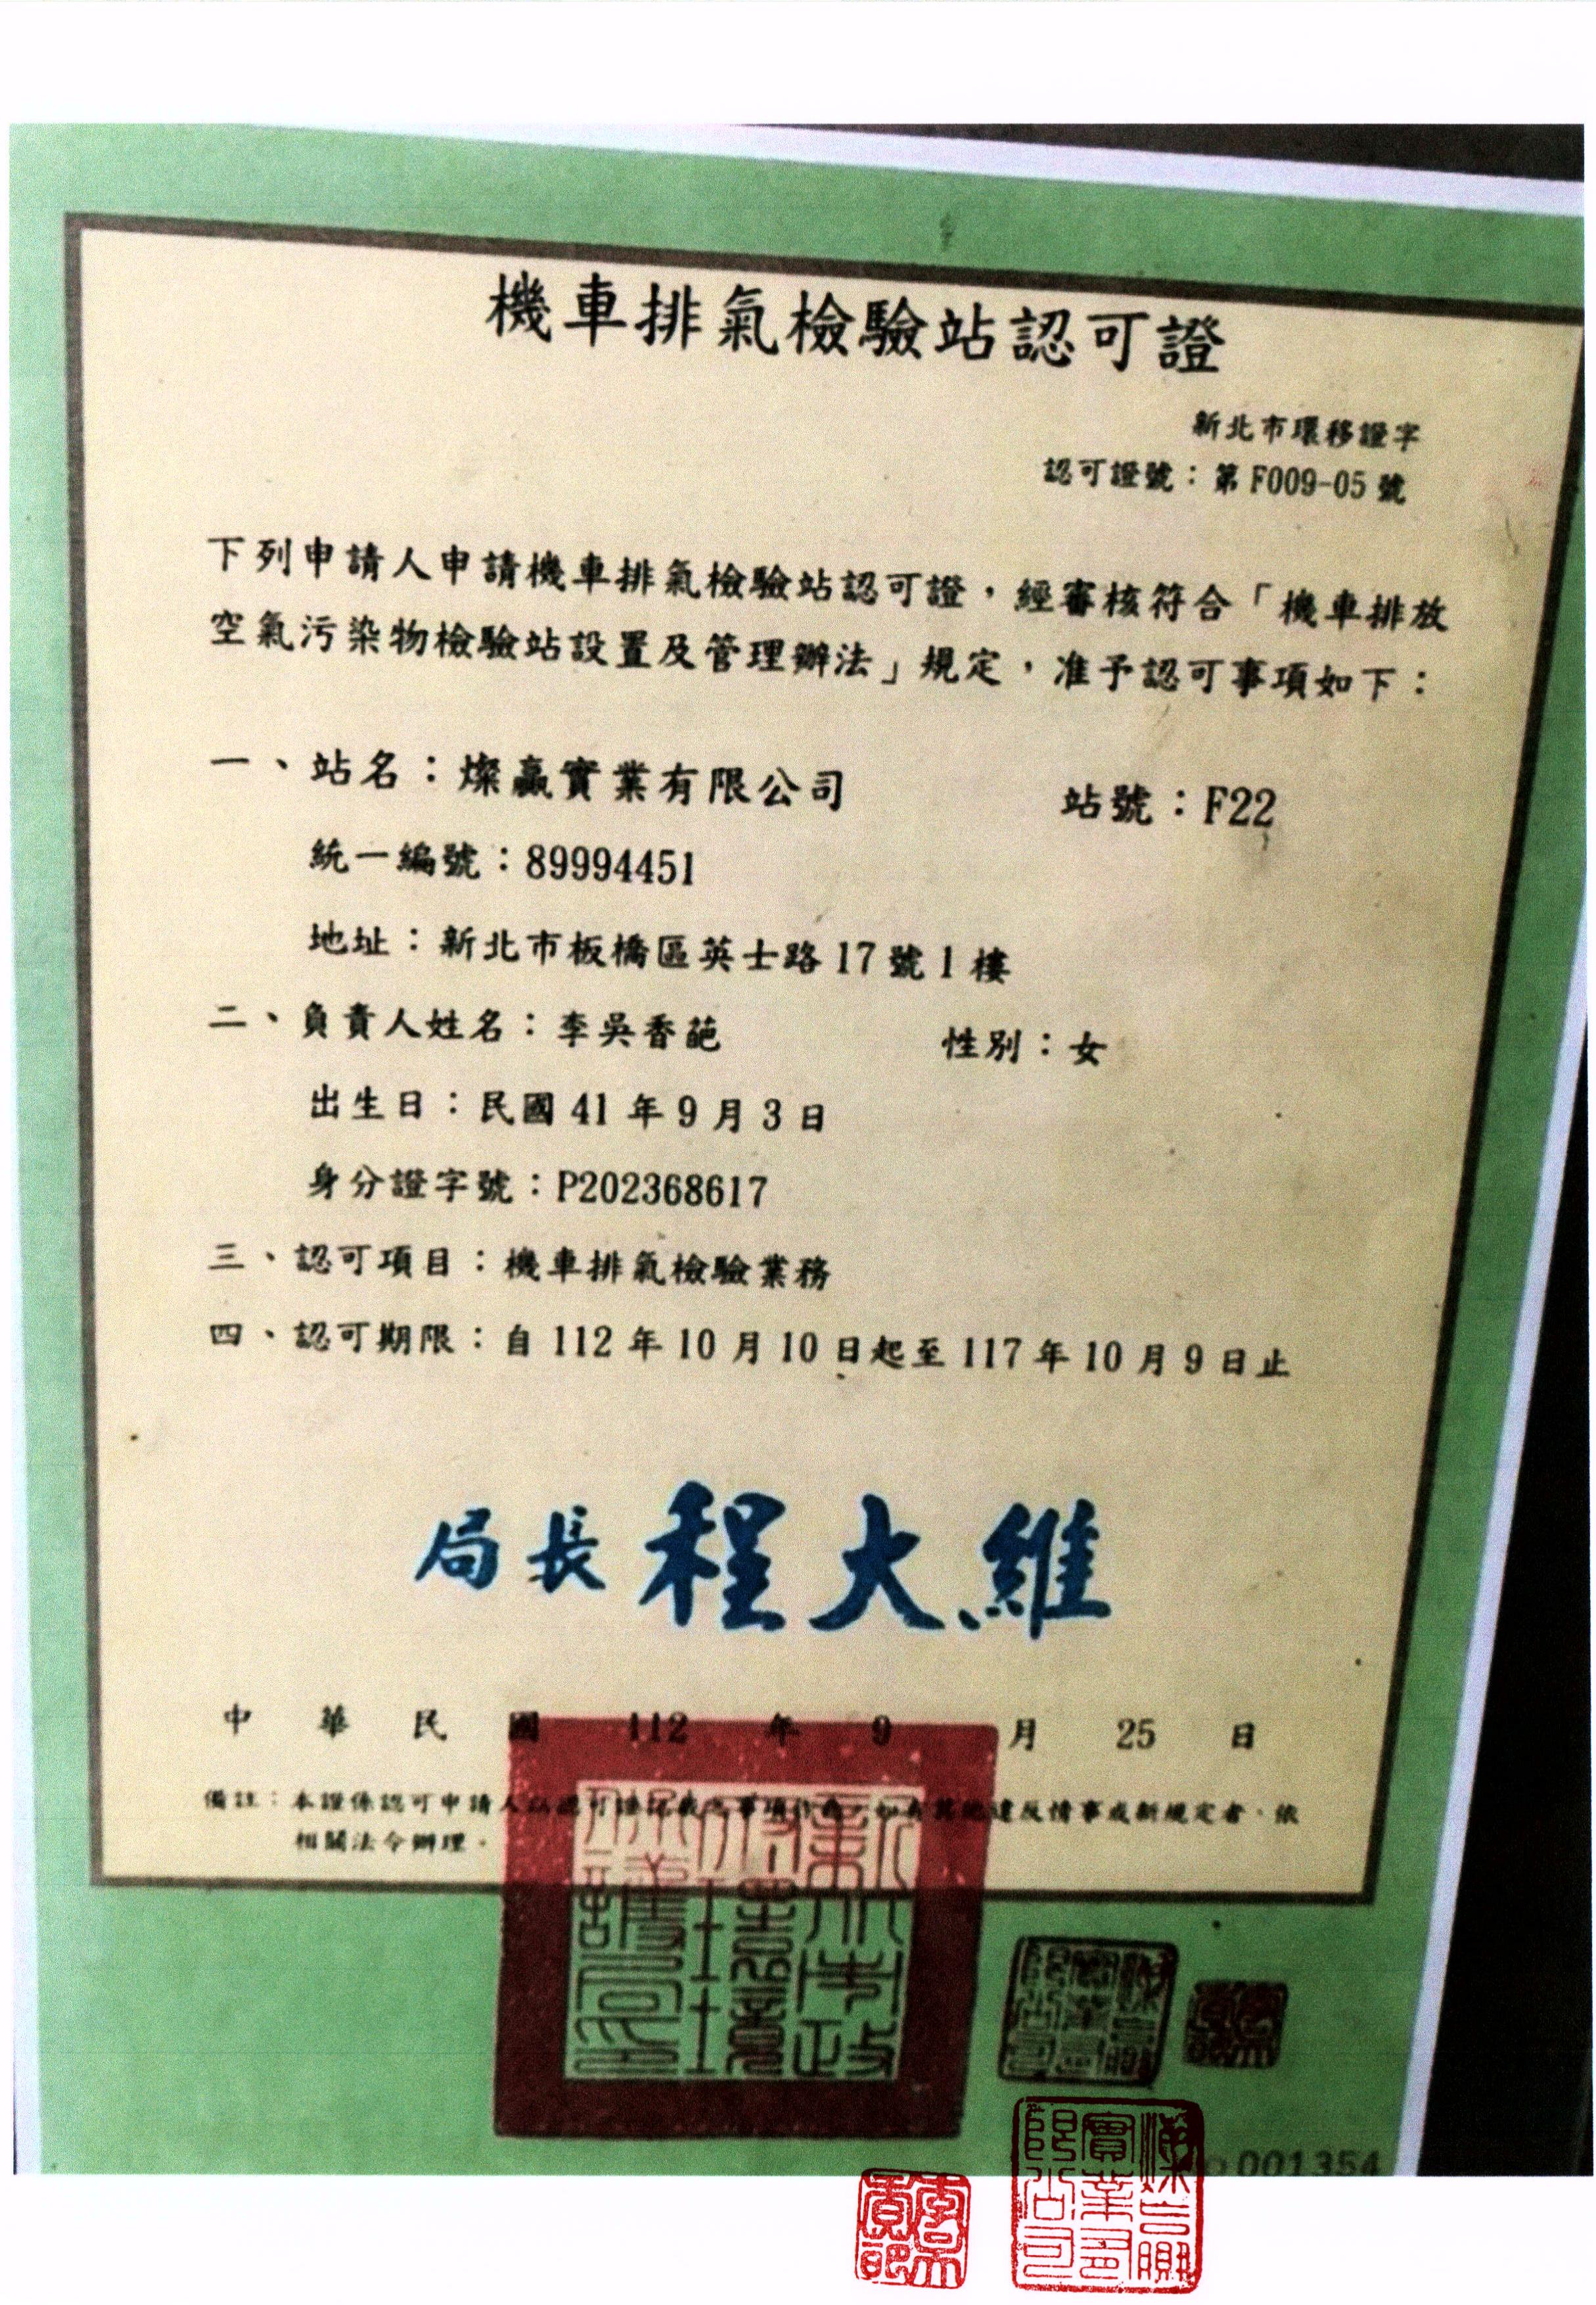 機車排氣檢驗站認可證
新北市環移證字
認可證號：第 F009-05 號
下列申請人申請機車排氣檢驗站認可證，經審核符合「機車排放
空氣污染物檢驗站設置及管理辦法」規定，准予認可事項如下：
一、站名：燦贏實業有限公司 站號：F22
統一編號：89994451
地址：新北市板橋區英士路 17 號 1 樓
二、負責人姓名：李吳香葩 性別：女
出生日：民國 41 年 9 月 3 日
身分證字號：P202368617
三、認可項目：機車排氣檢驗業務
四、認可期限：自 112 年 10 月 10 日起至 117 年 10 月 9 日止
局長 程大維
中華民國 112 年 9 月 25 日
備註：本證係認可申請人以認可證記載之事項作為，如有其他違反情事或新規定者，依
相關法令辦理。
001354